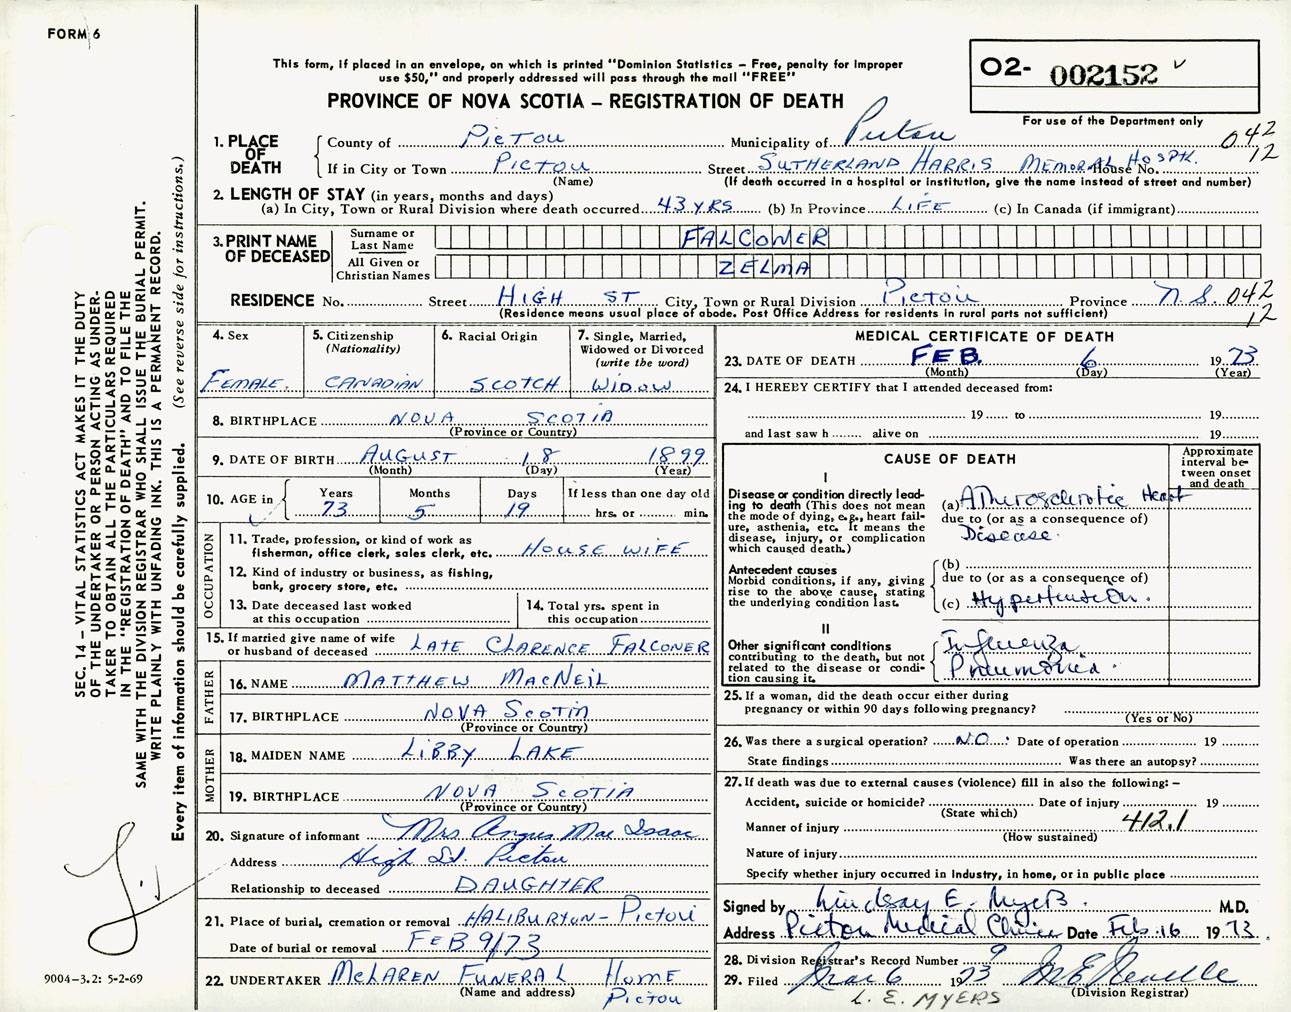 FORM 6
This form, if placed in an envelope, on which is printed "Dominion Statistics – Free, penalty for improper
use $50," and properly addressed will pass through the mail "FREE"
PROVINCE OF NOVA SCOTIA – REGISTRATION OF DEATH
O2- 002152
For use of the Department only
1. PLACE OF DEATH
County of PICTOU Municipality of Pictou 042
If in City or Town PICTOU Street SUTHERLAND HARRIS MEMORIAL HOSPTL. House No. 12
(Name) (If death occurred in a hospital or institution, give the name instead of street and number)
2. LENGTH OF STAY (in years, months and days)
(a) In City, Town or Rural Division where death occurred 43 YRS (b) In Province LIFE (c) In Canada (if immigrant)
3. PRINT NAME OF DECEASED
Surname or Last Name FALCONER
All Given or Christian Names ZELMA
RESIDENCE No. Street HIGH ST City, Town or Rural Division PICTOU Province N.S. 042
(Residence means usual place of abode. Post Office Address for residents in rural parts not sufficient) 12
4. Sex FEMALE.
5. Citizenship (Nationality) CANADIAN
6. Racial Origin SCOTCH
7. Single, Married, Widowed or Divorced (write the word) WIDOW
8. BIRTHPLACE NOVA SCOTIA
(Province or Country)
9. DATE OF BIRTH AUGUST 18 1899
(Month) (Day) (Year)
10. AGE in Years 73 Months 5 Days 19 If less than one day old hrs. or min.
OCCUPATION
11. Trade, profession, or kind of work as
fisherman, office clerk, sales clerk, etc. HOUSE WIFE
12. Kind of industry or business, as fishing,
bank, grocery store, etc.
13. Date deceased last worked
at this occupation
14. Total yrs. spent in
this occupation
15. If married give name of wife
or husband of deceased LATE CLARENCE FALCONER
FATHER
16. NAME MATTHEW MACNEIL
17. BIRTHPLACE NOVA SCOTIA
(Province or Country)
MOTHER
18. MAIDEN NAME LIBBY LAKE
19. BIRTHPLACE NOVA SCOTIA
(Province or Country)
20. Signature of informant Mrs Angus Mac Isaac
Address High St. Pictou
Relationship to deceased DAUGHTER
21. Place of burial, cremation or removal HALIBURTON – PICTOU
Date of burial or removal FEB 9/73
22. UNDERTAKER McLAREN FUNERAL HOME
(Name and address) PICTOU
MEDICAL CERTIFICATE OF DEATH
23. DATE OF DEATH FEB. 6 1973
(Month) (Day) (Year)
24. I HEREBY CERTIFY that I attended deceased from:
19 to 19
and last saw h alive on 19
CAUSE OF DEATH
Approximate interval between onset and death
I
Disease or condition directly leading to death (This does not mean the mode of dying, e.g., heart failure, asthenia, etc. It means the disease, injury, or complication which caused death.)
(a) Atherosclerotic Heart
due to (or as a consequence of)
Disease.
Antecedent causes
Morbid conditions, if any, giving rise to the above cause, stating the underlying condition last.
(b)
due to (or as a consequence of)
(c) Hypertension.
II
Other significant conditions
contributing to the death, but not related to the disease or condition causing it.
Influenza
Pneumonia.
25. If a woman, did the death occur either during
pregnancy or within 90 days following pregnancy?
(Yes or No)
26. Was there a surgical operation? NO. Date of operation 19
State findings Was there an autopsy?
27. If death was due to external causes (violence) fill in also the following: –
Accident, suicide or homicide? Date of injury 19
(State which) 412.1
Manner of injury
(How sustained)
Nature of injury
Specify whether injury occurred in Industry, in home, or in public place
Signed by Lindsay E. Myers. M.D.
Address Pictou Medical Clinic Date Feb. 16 1973.
28. Division Registrar's Record Number 9
29. Filed Mar 6 1973
(Division Registrar)
L. E. MYERS
SEC. 14 – VITAL STATISTICS ACT MAKES IT THE DUTY
OF THE UNDERTAKER OR PERSON ACTING AS UNDER-
TAKER TO OBTAIN ALL THE PARTICULARS REQUIRED
IN THE "REGISTRATION OF DEATH" AND TO FILE THE
SAME WITH THE DIVISION REGISTRAR WHO SHALL ISSUE THE BURIAL PERMIT.
WRITE PLAINLY WITH UNFADING INK. THIS IS A PERMANENT RECORD.
Every item of information should be carefully supplied. (See reverse side for instructions.)
9004–3.2: 5-2-69